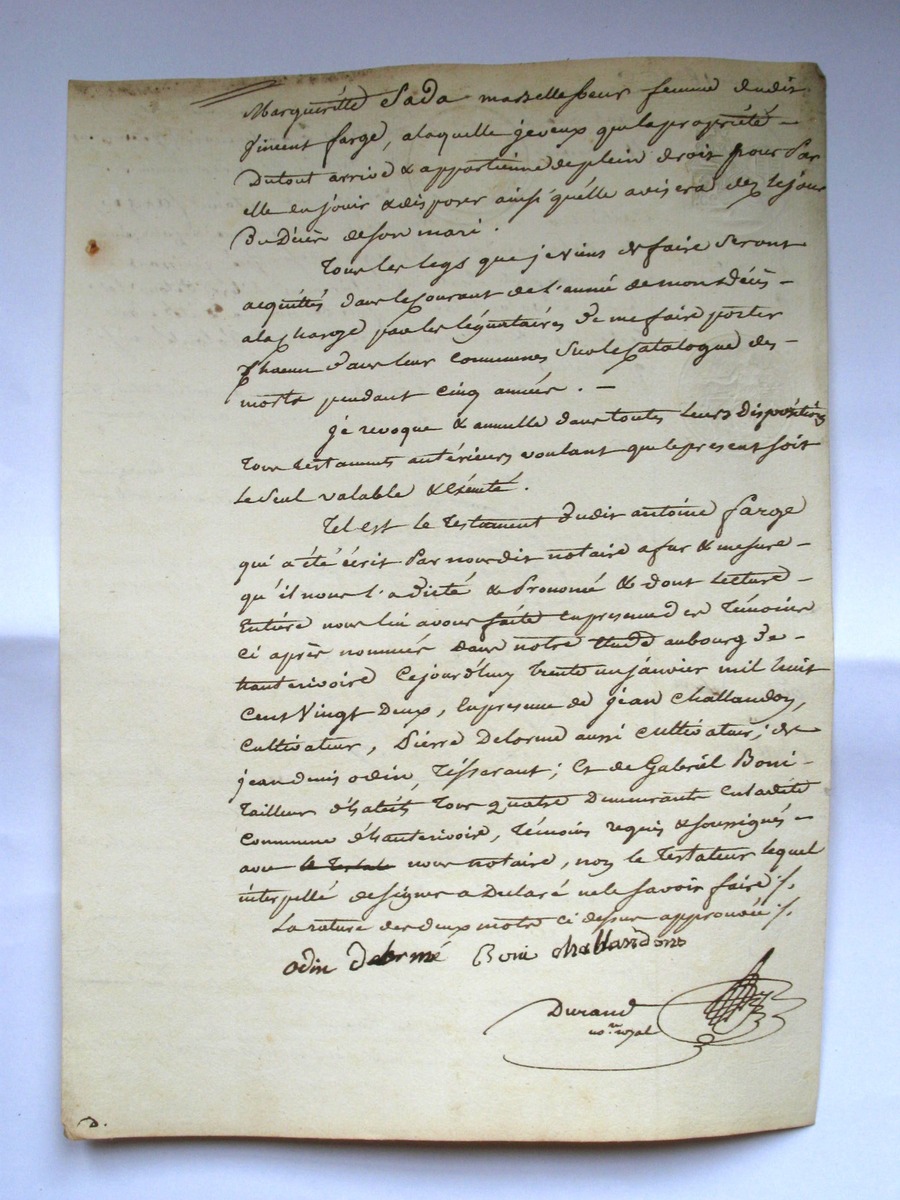 Margueritte Sada marsellesbeur femme dudit
Vincent farge, alaquelle jeveux que la propriété –
Dutout arrive & appartienne deplein droit pour Par
elle en jouir & disposer ainsi qu'elle avisera des lejour
Du Décès deson mari.
Tous les legs que jeviens de faire seront
acquittés dans lecourant de l'année demondécès –
alacharge par les légataires de mefaire porter
chacun dans leur communes sur le Catalogue des –
morts pendant cinq années. –
je revoque & annulle dans toutes leurs dispositions
tous testaments antérieurs voulant que lepresent soit
le seul valable & éxécuté.
Tel est le testament dudit antoine farge
qui a été écrit Par nousdit notaire a fur & mesure –
qu'il nous l'a dicté & Prononcé & dont lecture –
entiere nous lui avons faite enpresence des témoins
ci après nommés dans notre Etude aubourg de –
hauterivoire Cejourd'huy trente unjanvier mil huit
cent Vingt Deux, enpresence de jean Challandon,
cultivateur, Pierre Delorme aussi cultivateur, de
jean denis odin, tisserant; Et de Gabriel Boni –
tailleur d'habits tous quatre Demeurants enladite
commune d'hauterivoire, témoins requis & soussignés –
avec le Testat nous notaire, non le Testateur lequel
interpellé designer a Declaré nele savoir faire ./.
La rature des deux mots ci dessus approuvée ./.
odin Delorme Boni challandons
Durand
no.re royal
D.